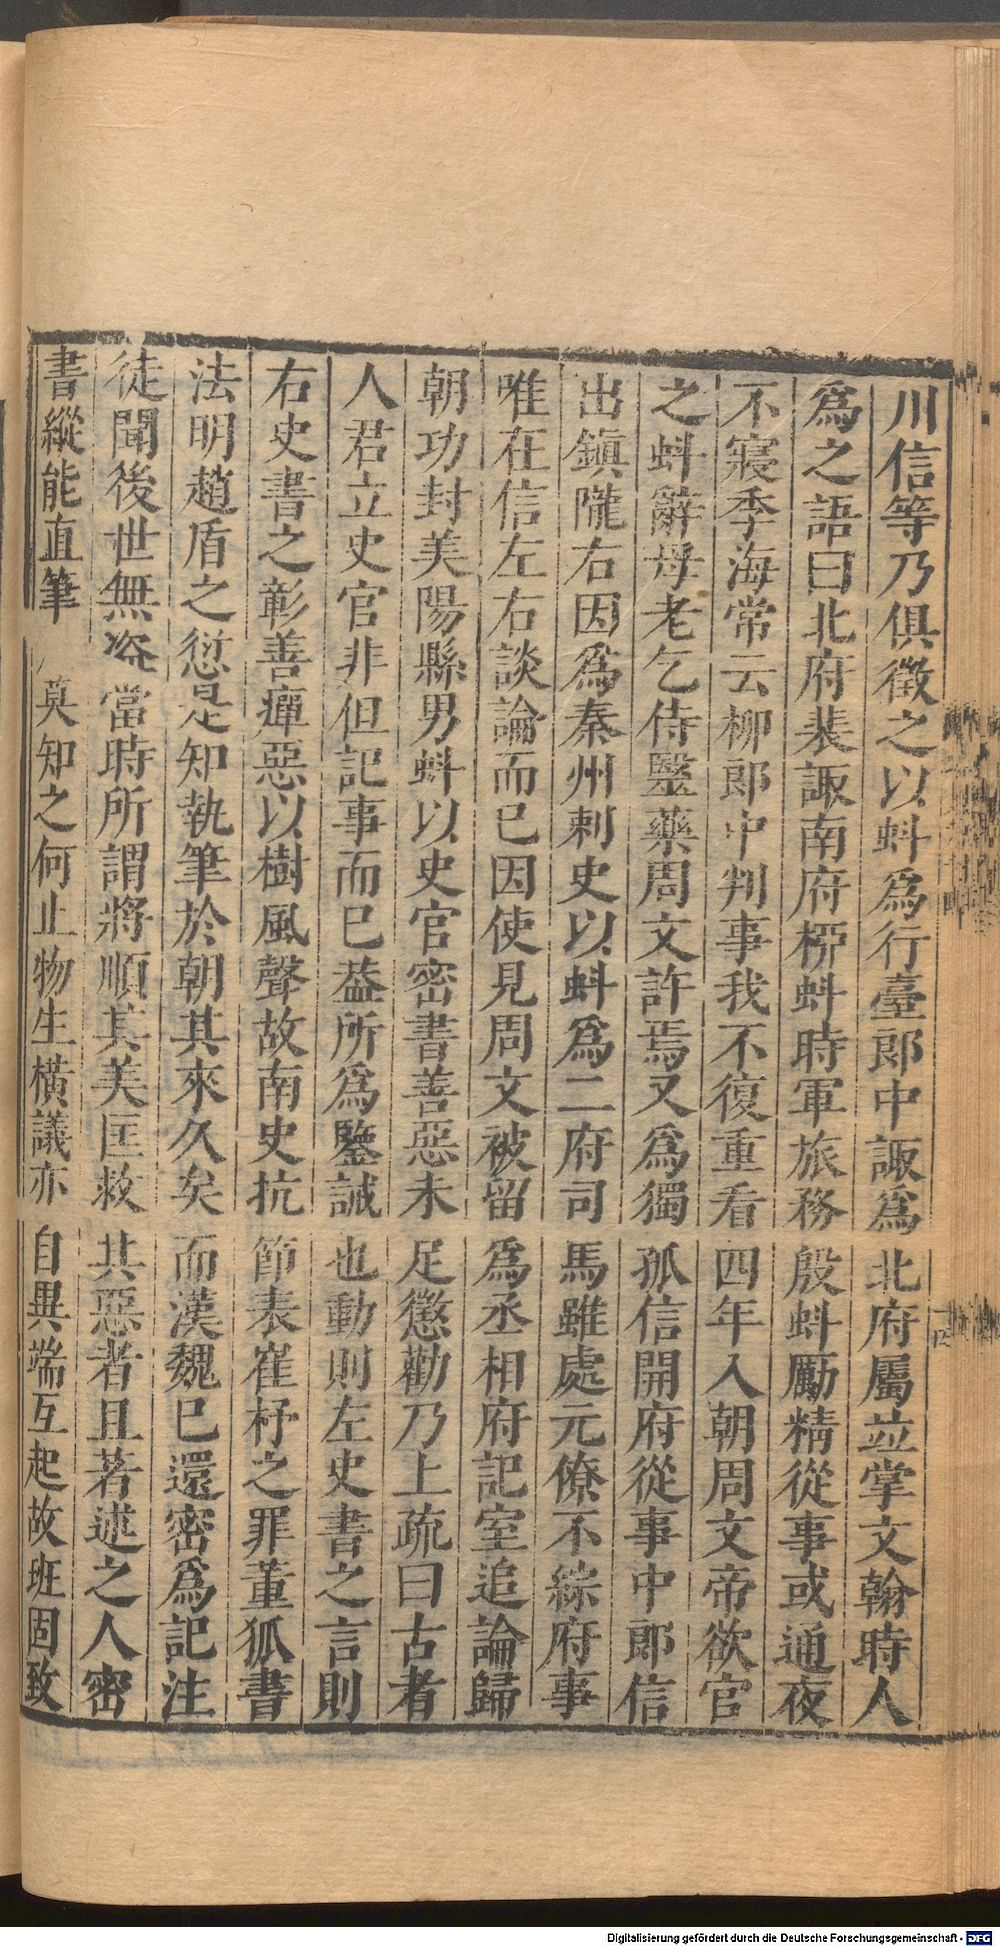 川信等乃俱徵之以蚪爲行臺郎中諏爲北府屬竝掌文翰時人
爲之語曰北府裴諏南府栁蚪時軍旅務殷蚪勵精從事或通夜
不寢季海常云柳郎中判事我不復重看四年入朝周文帝欲官
之蚪辭母老乞侍毉藥周文許焉又爲獨孤信開府從事中郎信
出鎮隴右因爲秦州刺史以蚪爲二府司馬雖處元僚不綜府事
唯在信左右談論而已因使見周文被留爲丞相府記室追論歸
朝功封美陽縣男蚪以史官密書善惡未足懲勸乃上疏曰古者
人君立史官非但記事而已葢所爲鑒誡也動則左史書之言則
右史書之彰善癉惡以樹風聲故南史抗節表崔杼之罪董狐書
法明趙盾之愆是知執筆於朝其來久矣而漢魏已還密爲記注
徒聞後世無當時所謂將順其美匡救其惡者且若述之人密
書縱能直筆莫知之何止物生橫議亦自異端互起故班固致
Digitalisierung gefördert durch die Deutsche Forschungsgemeinschaft - DFG